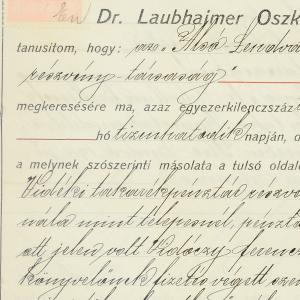 Dr. Laubhaimer Oszk
tanusítom, hogy: az „Alsó Lendva
részvény-társaság"
megkeresésére ma, azaz egyezerkilenczszáz
hó tizenhatodik napján, d
a melynek szószerinti másolata a tulsó oldalo
Vidéki takarékpénztár részvé
nála mint telepesnél, pénztár
ott jelen volt Vidóczy ferencz
könyvelőnek fizetés végett